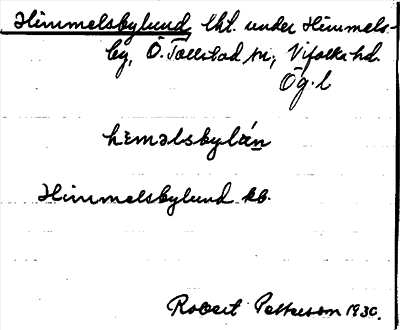 Himmelsbylund, lht. under Himmels-
by, Ö. Tollstad sn, Vifolka hd.
Ög. l
Himmelsbylund kb.
Robert Petterson 1930.